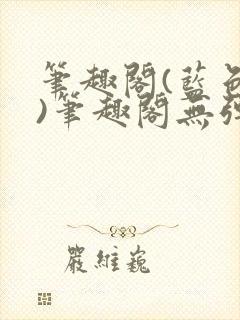 筆趣閣(藍色
)筆趣閣無彈
嚴維巍